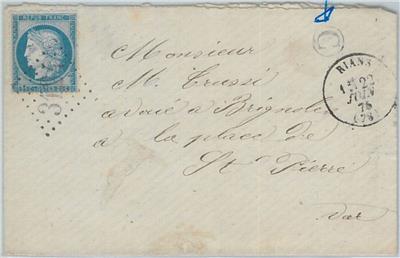 REPUB. FRANC.
C
RIANS
1E 22
JUIN
76
(78)
Monsieur
M. Trussi
avoué à Brignole
à la place de
St Pierre
Var